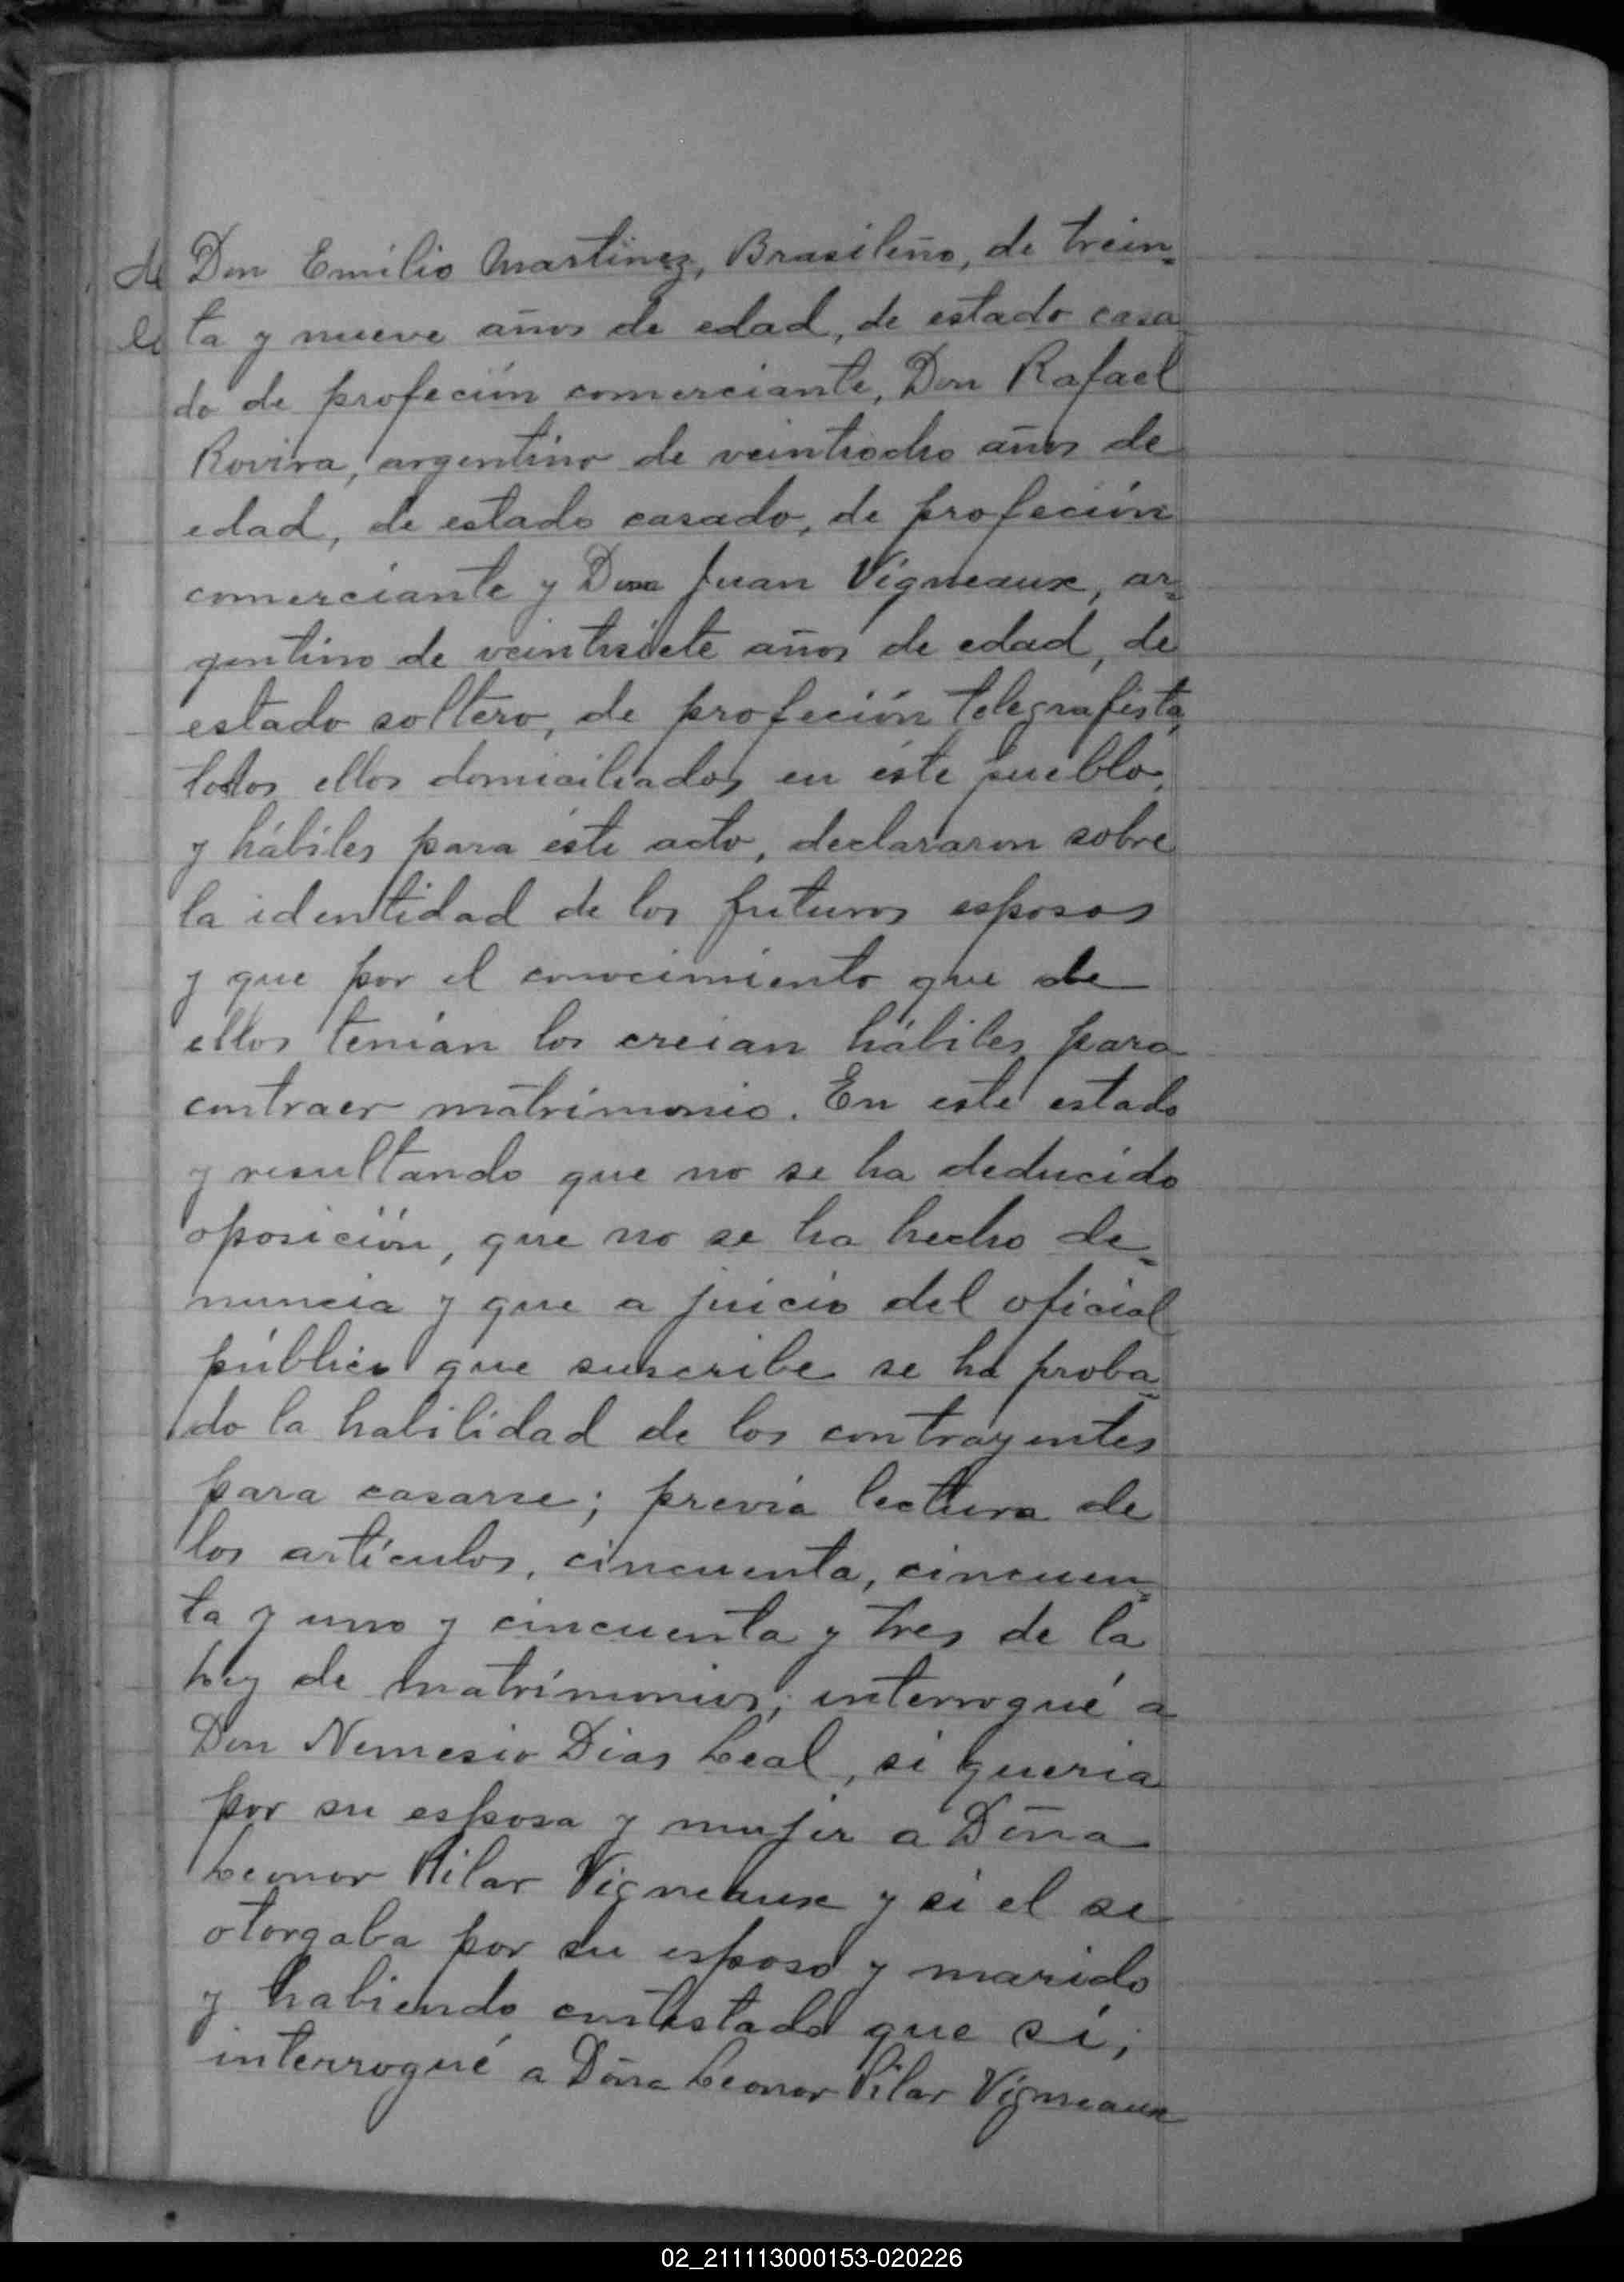 de Don Emilio Martinez, Brasileño, de trein=
ta y nueve años de edad, de estado casa
do de profeción comerciante, Don Rafael
Rovira, argentino de veintiocho años de
edad, de estado casado, de profeción
comerciante y Don Juan Vigneaux, ar=
gentino de veintisiete años de edad, de
estado soltero, de profeción telegrafista,
todos ellos domiciliados en éste pueblo,
y hábiles para éste acto, declararon sobre
la identidad de los futuros esposos
y que por el conocimiento que de
ellos tenían los creian hábiles para
contraer matrimonio. En este estado
y resultando que no se ha deducido
oposición, que no se ha hecho de=
nuncia y que a juicio del oficial
público que suscribe se ha proba=
do la habilidad de los contrayentes
para casarse; previa lectura de
los artículos, cincuenta, cincuen=
ta y uno y cincuenta y tres de la
Ley de matrimonios; interrogué a
Don Nemesio Dias Leal, si queria
por su esposa y mujer a Doña
Leonor Pilar Vigneaux y si el se
otorgaba por su esposo y marido
y habiendo contestado que sí;
interrogué a Doña Leonor Pilar Vigneaux
02_211113000153-020226